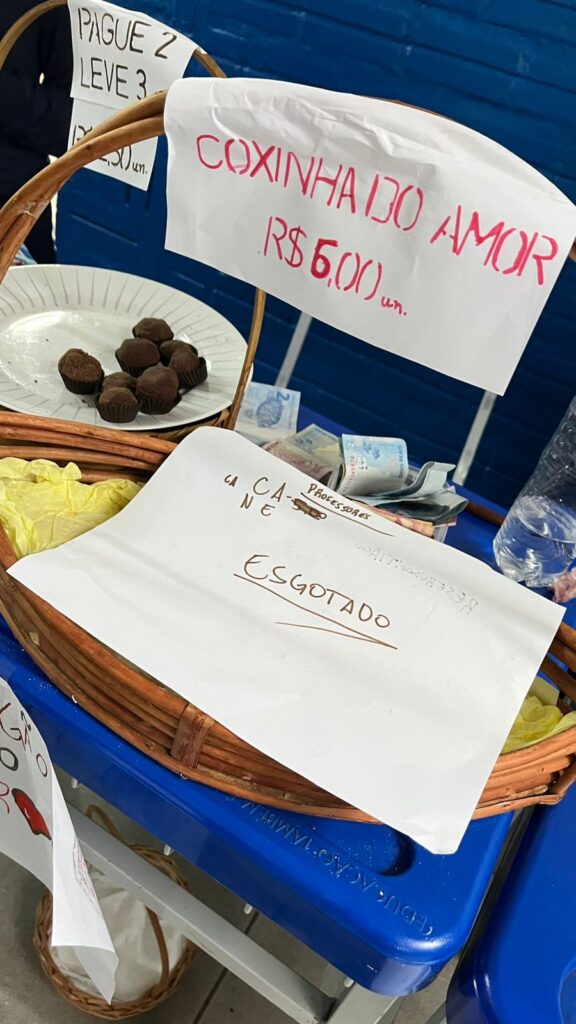 PAGUE 2
LEVE 3
un.
COXINHA DO AMOR
R$ 6,00 un.
CA CA- PROFESSORES
NE
ESGOTADO